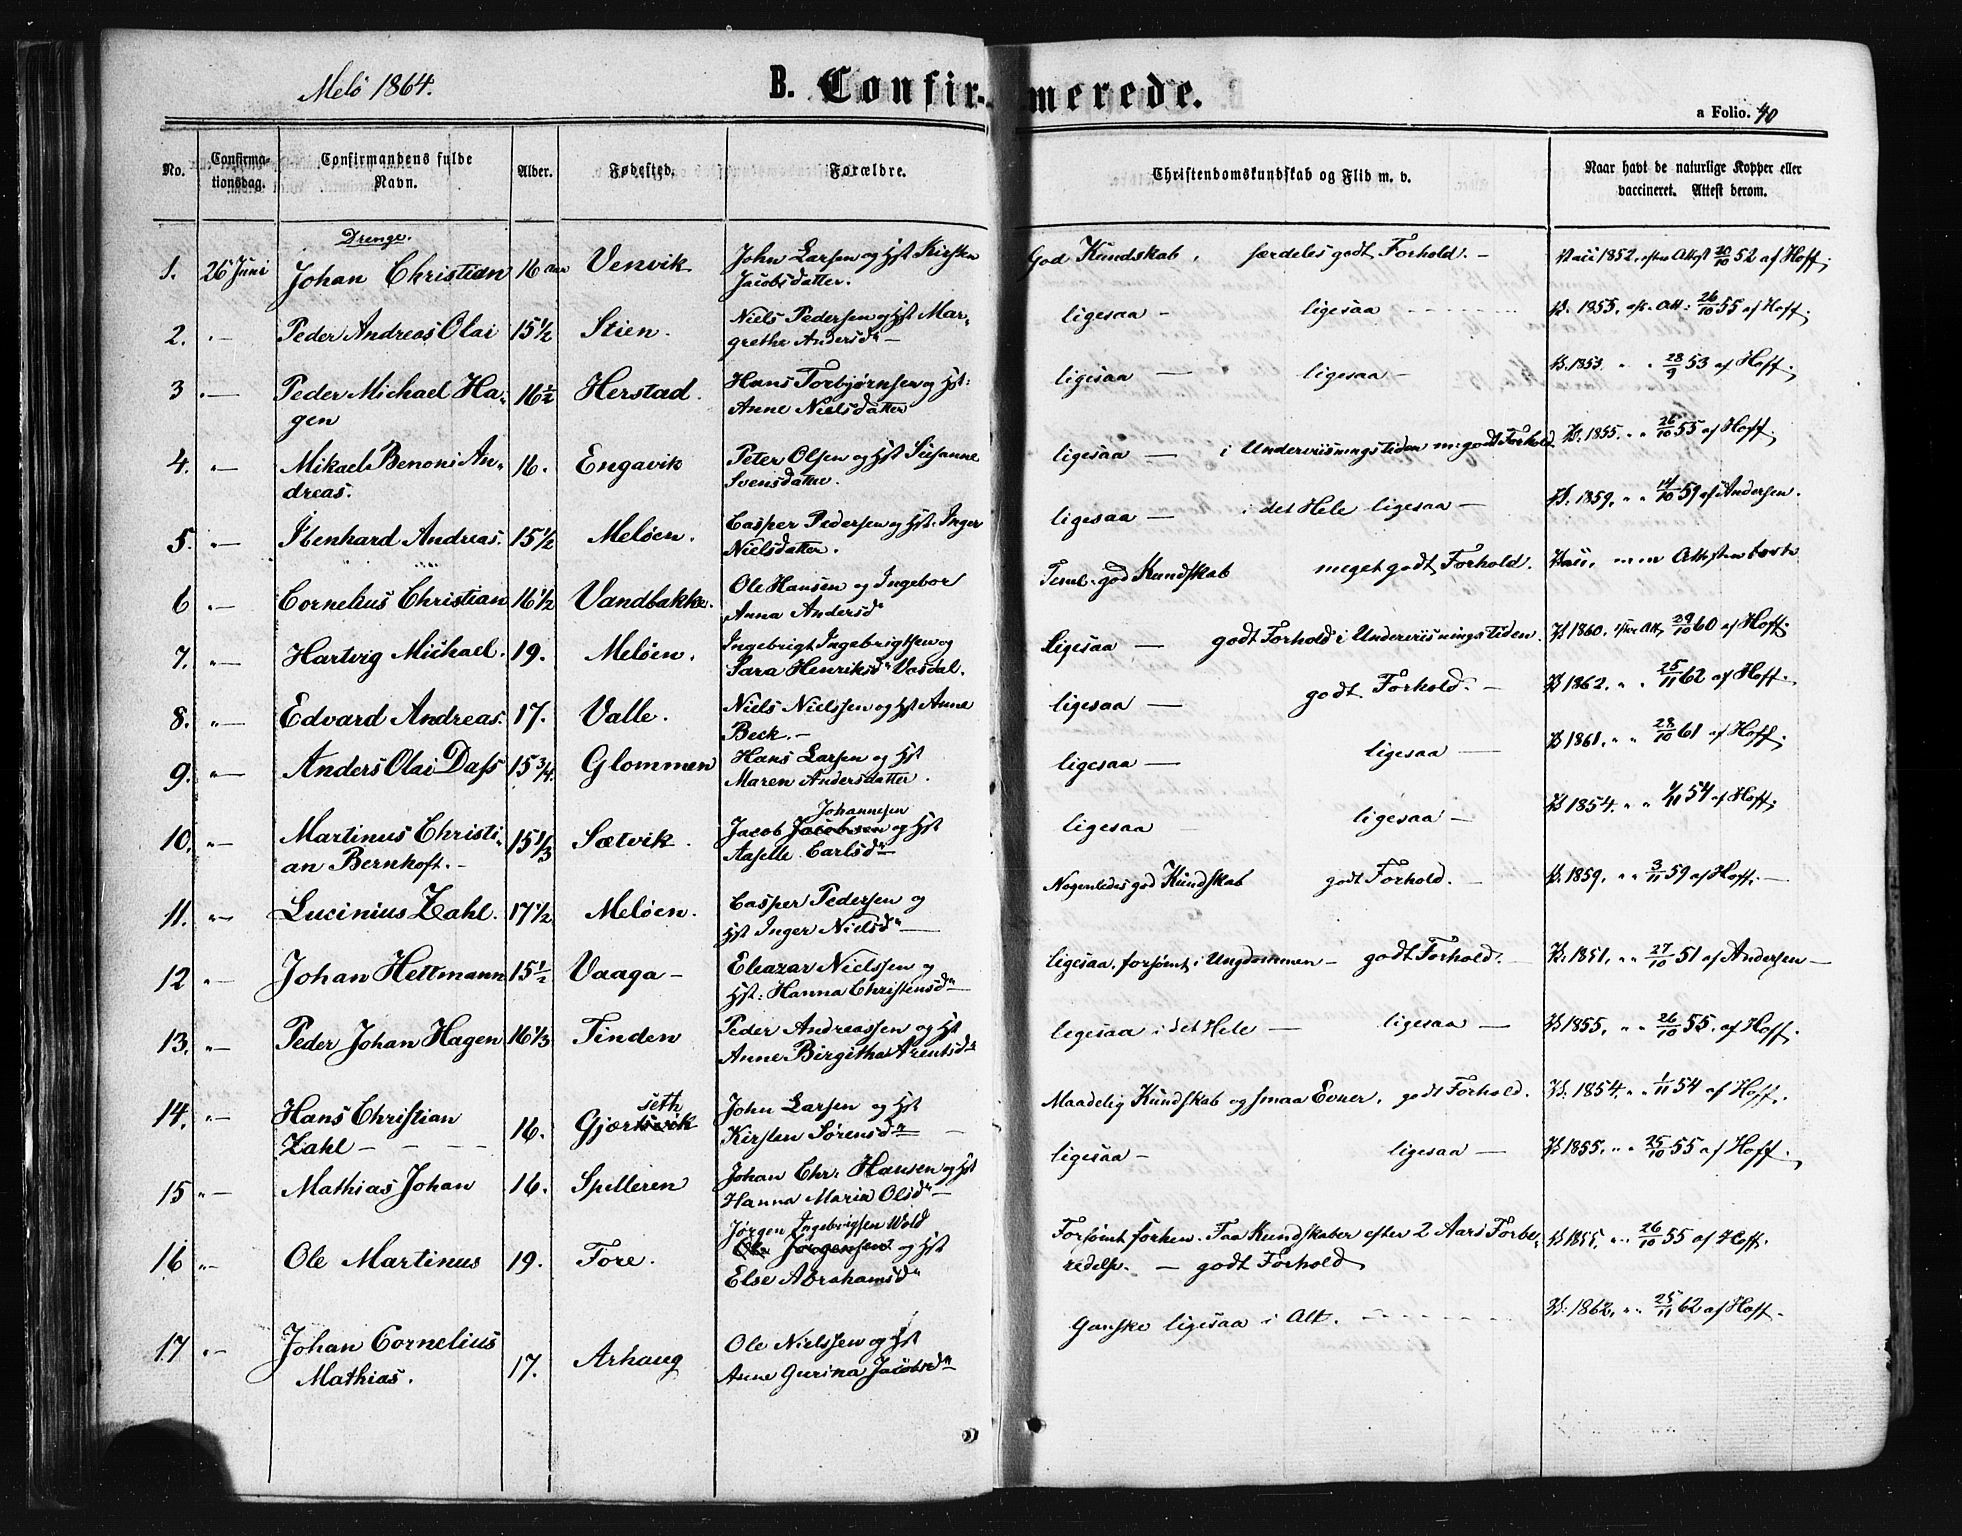 Melö 1864.
B. Confirmerede.
a Folio. 40
No.
Confirma-
tionsdag.
Confirmandens fulde
Navn.
Alder.
Fødested.
Forældre.
Christendomskundskab og Flid m. v.
Naar havt de naturlige Kopper eller
vaccineret. Attest derom.
Drenge.
1. 26 Juni Johan Christian 16 Venvik John Larsen og Hst Kirsten
Jacobsdatter.
God Kundskab, særdeles godt Forhold. — Vacc 1852, efter Attest 20/10 52 af Hoff.
2. "— Peder Andreas Olai 15 1/2 Stien. Niels Pedersen og Hst Mar-
grethe Andersdr —
ligesaa — ligesaa — V. 1855. eft. Att: 26/10 55 af Hoff.
3 "— Peder Michael Ha-
gen
16 1/2 Herstad. Hans Torbjørnsen og Hst:
Anne Nielsdatter
ligesaa — ligesaa — V. 1853. " " 28/9 53 af Hoff.
4. "— Mikael Benoni An-
dreas.
16. Engavik Peter Olsen og Hst Susanne
Svensdatter.
ligesaa — i Underviisningstiden m: godt Forhold V. 1855. " " 26/10 55 af Hoff.
5. "— Ibenhard Andreas. 15 1/2 Meløen. Casper Pedersen og Hst. Inger
Nielsdatter.
ligesaa — i det Hele ligesaa — V. 1859. " " 14/10 59 af Andersen.
6 "— Cornelius Christian 16 1/2 Vandbakke. Ole Hansen og Ingebor
Anna Andersdr
Teml. god Kundskab meget godt Forhold. Vacc. men Attesten borte
7. "— Hartvig Michael. 19. Meløen. Ingebrigt Ingebrigtsen og
Sara Henriksdr Vasdal.
Ligesaa — godt Forhold i Underviisningstiden. V 1860. efter Att, 29/10 60 af Hoff.
8. "— Edvard Andreas. 17. Valle. Niels Nielssen og Hst Anne
Beck. —
ligesaa — godt Forhold. — V 1862. " " 25/11 62 af Hoff.
9. "— Anders Olai Dass 15 3/4. Glommen Hans Larsen og Hst
Maren Andersdatter.
ligesaa — ligesaa — V 1861. " " 28/10 61 af Hoff.
10. "— Martinus Christi-
an Bernhoft. —
15 1/3 Sætvik. Johannesen
Jacob Jacobsen og Hst
Aaselle Carlsdr
ligesaa ligesaa — V 1854. " " 1/11 54 af Hoff.
11. "— Lucinius Zahl. 17 1/2 Meløen. Casper Pedersen og
Hst Inger Nielsdr —
Nogenledes god Kundskab godt Forhold. — V. 1859. " " 3/11 59 af Hoff. —
12 "— Johan Hettmann 15 1/2 Vaaga — Eleazar Nielssen og
Hst: Hanna Christensdr —
ligesaa. forsømt i Ungdommen — godt Forhold. — V. 1851. " " 27/10 51 af Andersen —
13. "— Peder Johan Hagen 16 1/3 Tinden Peder Andreassen og Hst
Anne Birgitha Arentsdr
ligesaa i det Hele — ligesaa — V 1855. " " 26/10 55. af Hoff.
14. "— Hans Christian
Zahl —
16. seth
Gjærsvik John Larsen og Hst
Kirsten Sørensdr —
Maadelig Kundskab og smaa Evner. godt Forhold. V. 1854. " " 1/11 54 af Hoff.
15 "— Mathias Johan 16. Spilleren Johan Chr: Hansen og Hst
Hanna Maria Olsdr —
ligesaa — ligesaa — V 1855. " " 25/10 55 af Hoff.
16 "— Ole Martinus 19. Fore. Jørgen Ingebrigtsen Wold
Ole Jørgensen og Hst
Else Abrahamsdr
Forsømt forhen. Faa Kundskaber efter 2 Aars Forbe-
redelse. — godt Forhold
V 1855. " " 26/10 55 af Hoff.
17 "— Johan Cornelius
Mathias.
17. Arhaug Ole Nielssen og Hst
Anne Gurina Jacobsdr
Ganske ligesaa i Alt. V. 1862. " " 25/11 62 af Hoff.